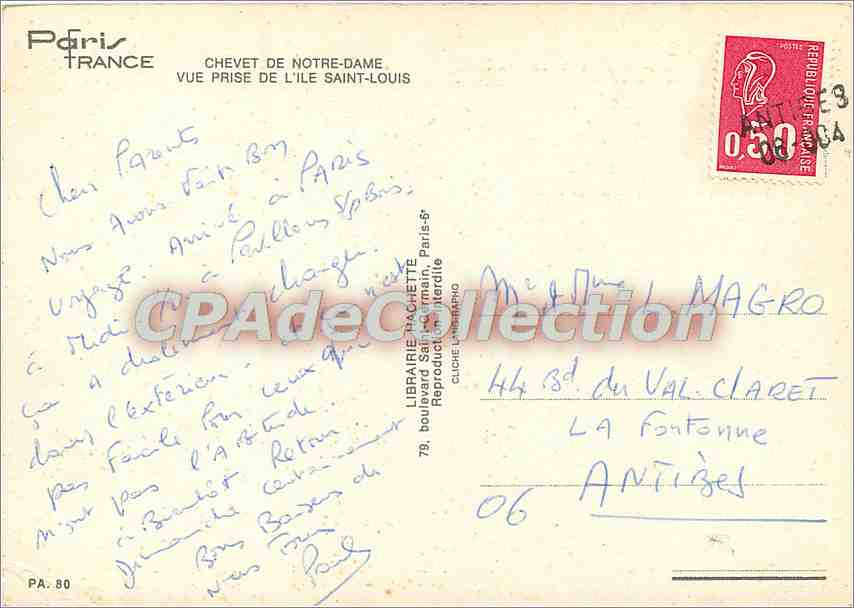 Paris
FRANCE
CHEVET DE NOTRE-DAME
VUE PRISE DE L'ILE SAINT-LOUIS
POSTES
REPUBLIQUE FRANÇAISE
0,50
ANTIBES
06-004
Chers Parents
Nous avons fait Bon
voyage. Arrivé à PARIS
à midi à Pavillons S/s Bois.
ça a drolement changer
dans l'extérieur. n'est
pas facile pour ceux qui
n'ont pas l'Abitude.
à Bientôt Retour
Dimanche certainement
Bons Baisers de
nous Tous
Paul
LIBRAIRIE HACHETTE
79, boulevard Saint-Germain, Paris-6e
Reproduction interdite
CLICHE LANG-RAPHO
CPAdeCollection
Mr & Mme L. MAGRO
44 Bd. du VAL. CLARET
LA Fontonne
ANTIBES
06
PA. 80